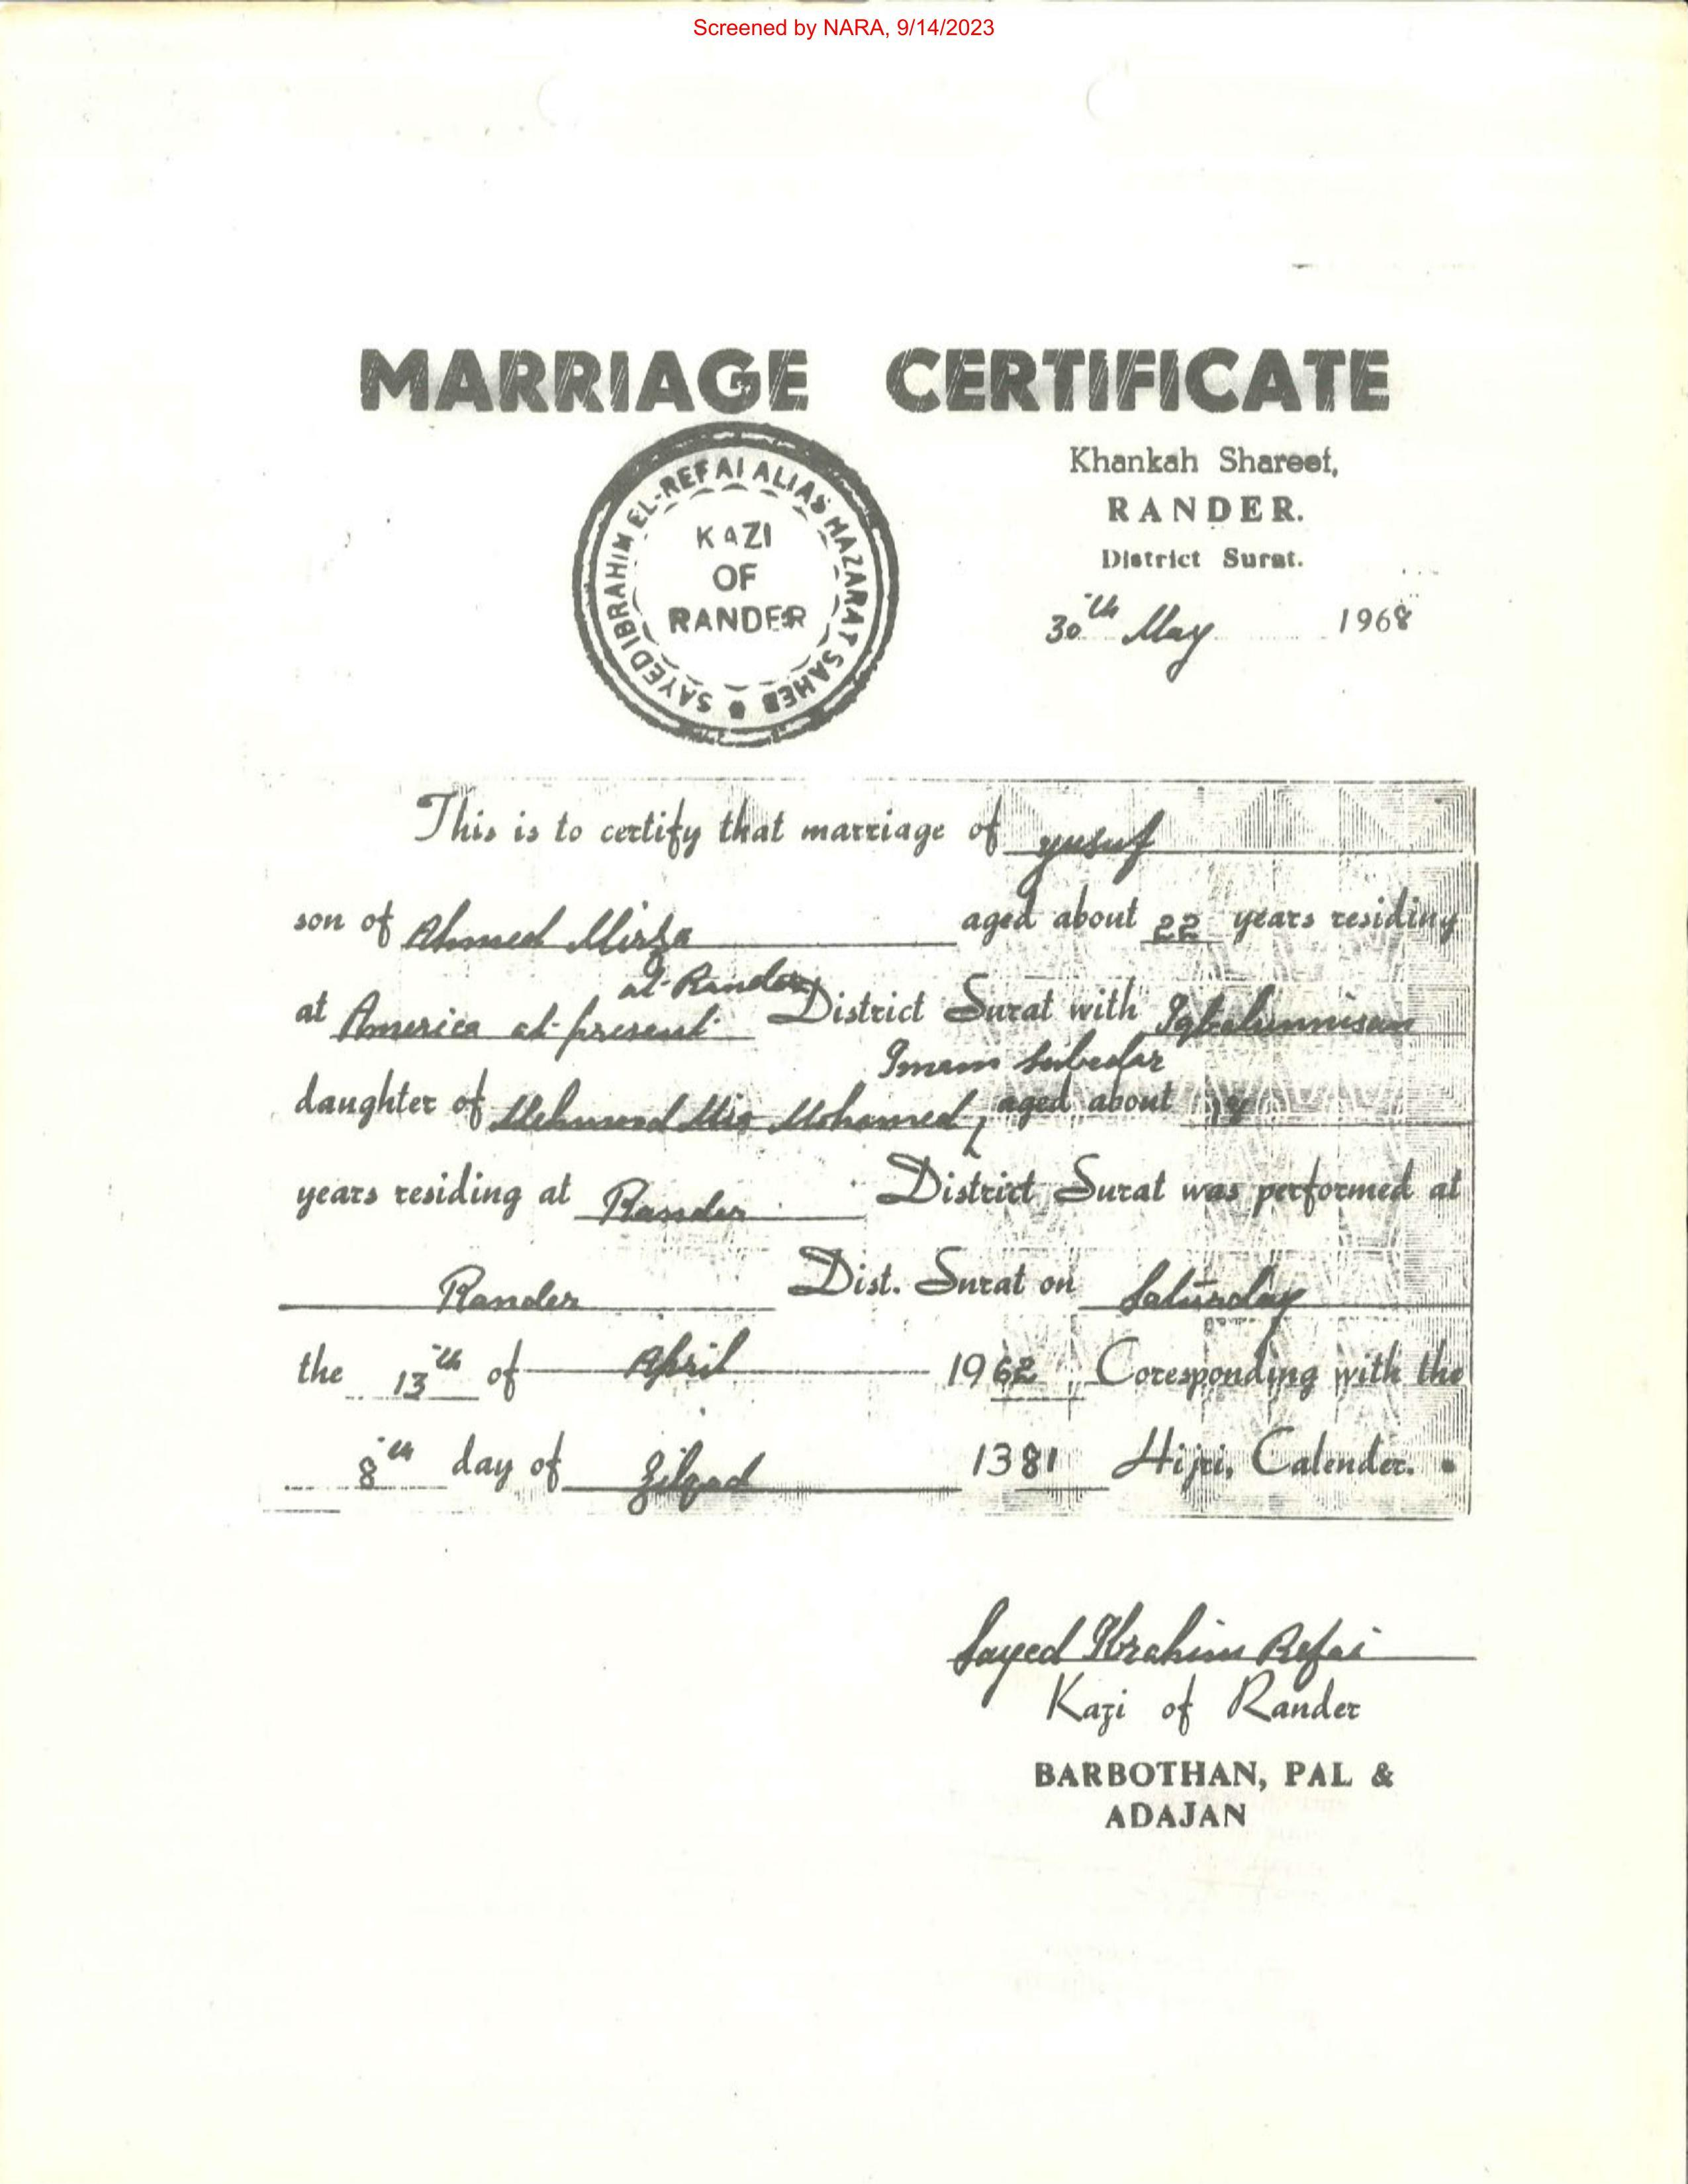 Screened by NARA, 9/14/2023
MARRIAGE CERTIFICATE
SAYED IBRAHIM EL-REFAI ALIAS HAZARAT SAHEB
KAZI
OF
RANDER
Khankah Shareef,
RANDER.
District Surat.
30th May 1968
This is to certify that marriage of yusuf
son of Ahmed Mirza aged about 22 years residing
at Rander
at America at present District Surat with Iqbalunnisan
Imam Subedar
daughter of Mehmood Mia Mohamed, aged about
years residing at Rander District Surat was performed at
Rander Dist. Surat on Saturday
the 13th of April 1962 Coresponding with the
8th day of Zilqad 1381 Hijri, Calender.
Sayed Ibrahim Refai
Kazi of Rander
BARBOTHAN, PAL &
ADAJAN